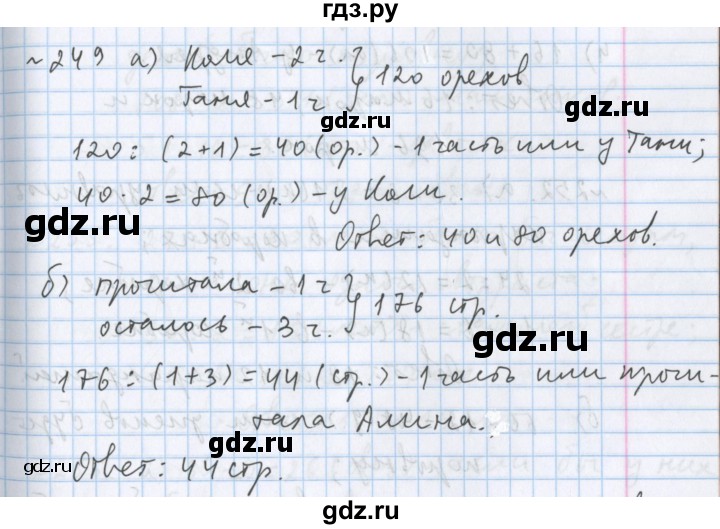 гдз.ру
№ 249 а) Коля – 2 ч. } 120 орехов
Таня – 1 ч
gdz.ru
120 : (2+1) = 40 (ор.) – 1 часть или у Тани;
40 · 2 = 80 (ор.) – у Коли.
gdz.ru
gdz.ru
Ответ: 40 и 80 орехов.
б) прочитала – 1 ч } 176 стр.
осталось – 3 ч.
gdz.ru
176 : (1+3) = 44 (стр.) – 1 часть или прочи-
тала Алина.
gdz.ru
gdz.ru
gdz.ru
Ответ: 44 стр.
gdz.ru